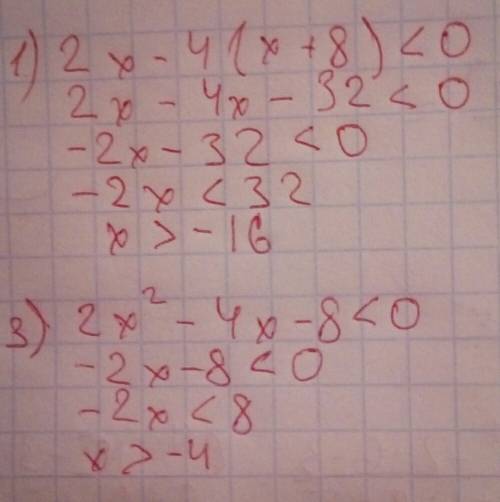 1) 2x - 4(x + 8) < 0
2x - 4x - 32 < 0
-2x - 32 < 0
-2x < 32
x > -16
3) 2x² - 4x - 8 < 0
-2x - 8 < 0
-2x < 8
x > -4